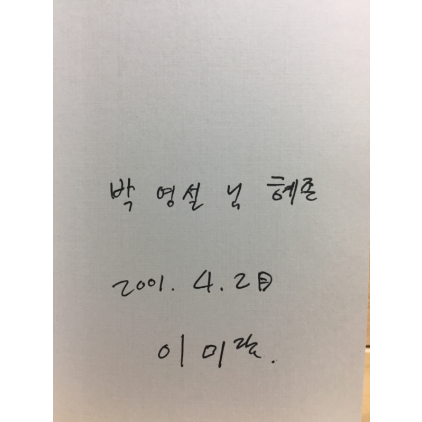 박 영설 님 혜존
2001. 4. 2日
이 미